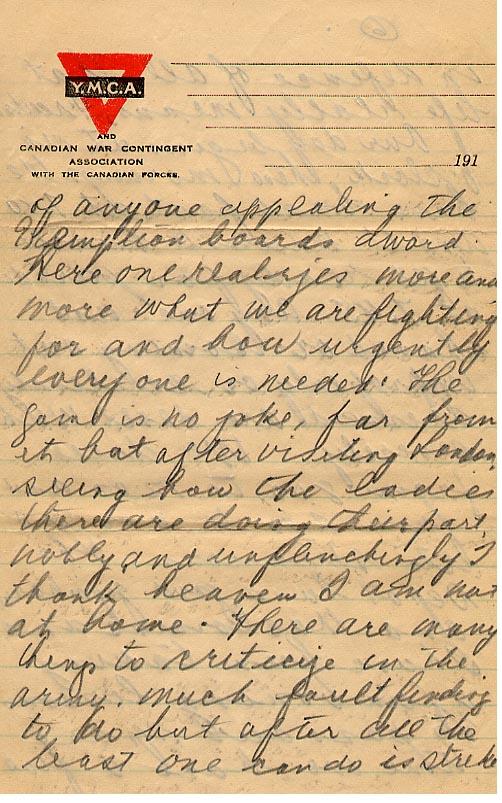 Y.M.C.A.
AND
CANADIAN WAR CONTINGENT
ASSOCIATION
WITH THE CANADIAN FORCES.
191
of anyone appealing the
Exemption boards award.
Here one realizes more and
more what we are fighting
for and how urgently
everyone is needed. The
game is no joke, far from
it but after visiting London,
seeing how the ladies
there are doing their part,
nobly and unflinchingly I
thank heaven I am not
at home. There are many
things to criticize in the
army. much fault finding
to do but after all the
least one can do is strike